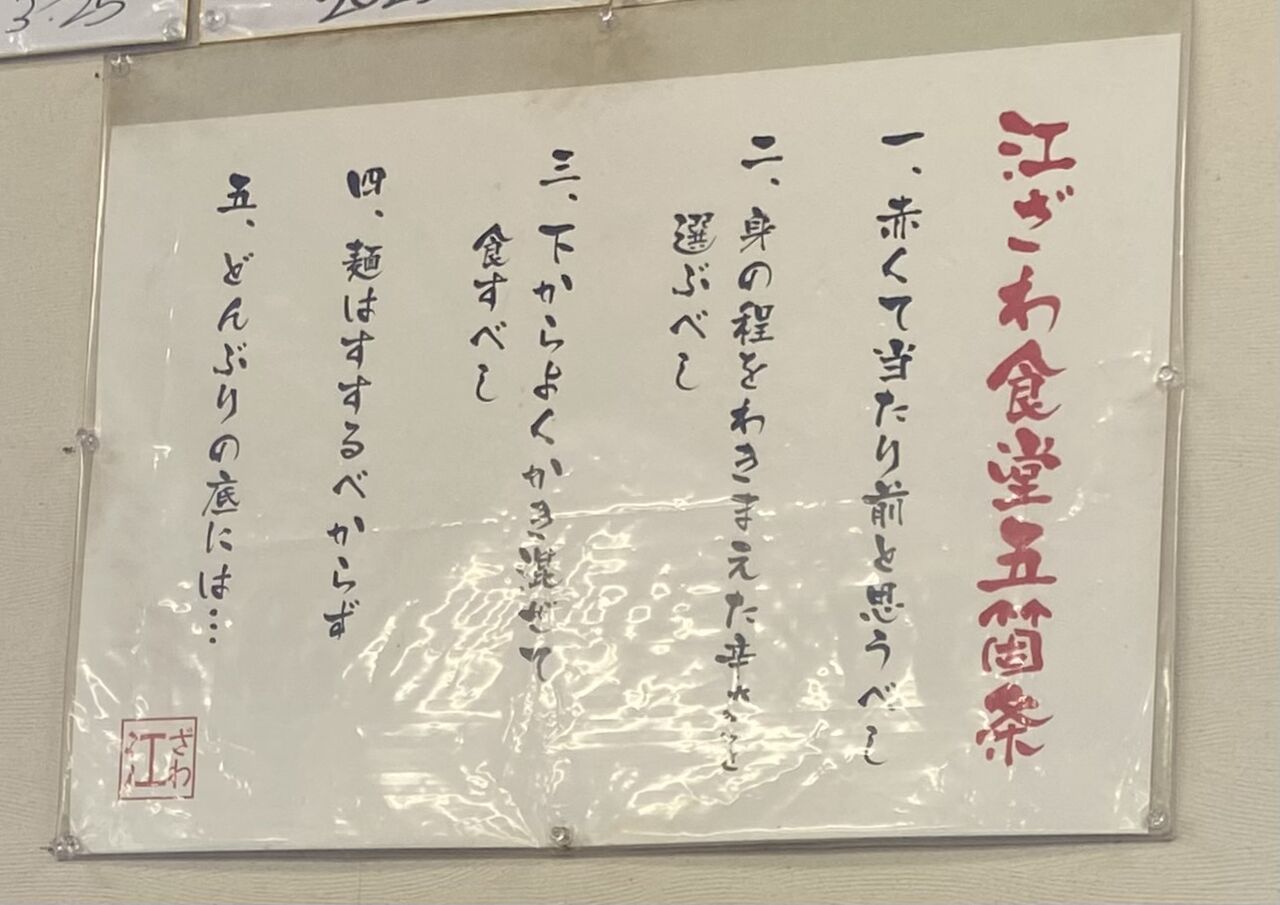 江ざわ食堂五箇条
一、赤くて当たり前と思うべし
二、身の程をわきまえた辛さを
選ぶべし
三、下からよくかき混ぜて
食すべし
四、麺はすするべからず
五、どんぶりの底には…
江ざわ
3.25